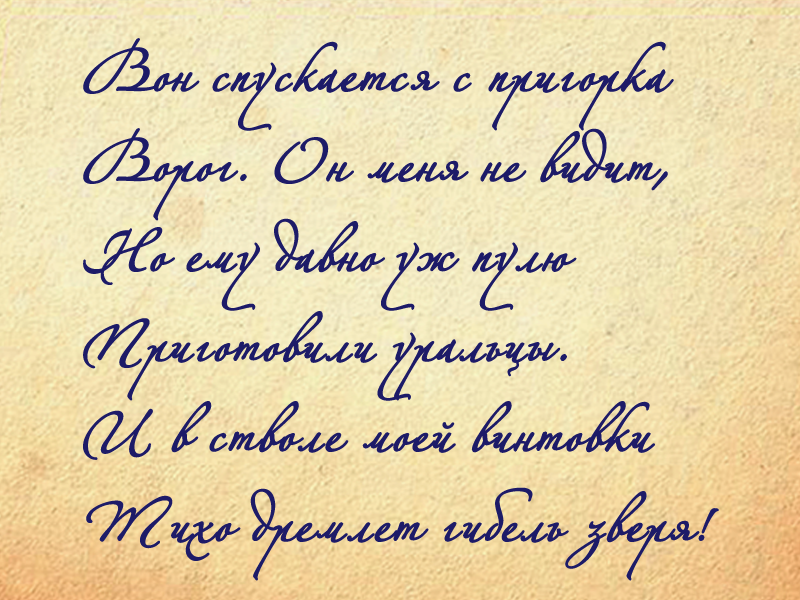 Вон спускается с пригорка
Ворог. Он меня не видит,
Но ему давно уж пулю
Приготовили уральцы.
И в стволе моей винтовки
Тихо дремлет гибель зверя!